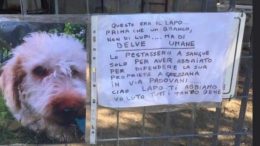 QUESTO ERA IL LAPO...
PRIMA CHE UN BRANCO,
NON DI LUPI... MA DI
BELVE UMANE
LO PESTASSERO A SANGUE
SOLO PER AVER ABBAIATO
PER DIFENDERE LA SUA
PROPRIETÀ A
IN VIA PADOVANI.
CIAO LAPO TI ABBIAMO
VOLUTO TUTTI TANTO BENE